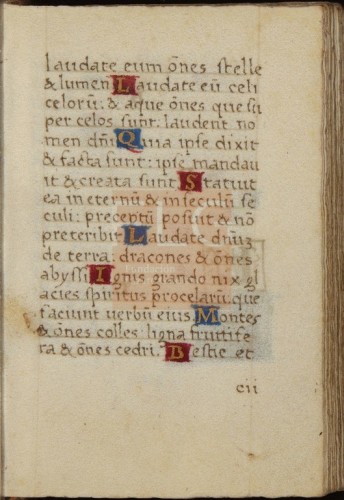 laudate eum oñes stelle
& lumen Laudate eū celi
celorū: & aque oñes que su
per celos sunt: laudent no
men dñi Quia ipse dixit
& facta sunt: ipse mandau
it & creata sunt Statuit
ea in eternū & inseculū se
culi: preceptū posuit & nō
preteribit Laudate dnūz
de terra: dracones & oñes
abyssi Ignis grando nix gl
acies spiritus procelarū: que
faciunt verbū eius Montes
& oñes colles: ligna fruttife
ra & oñes cedri. Bestie et
cii